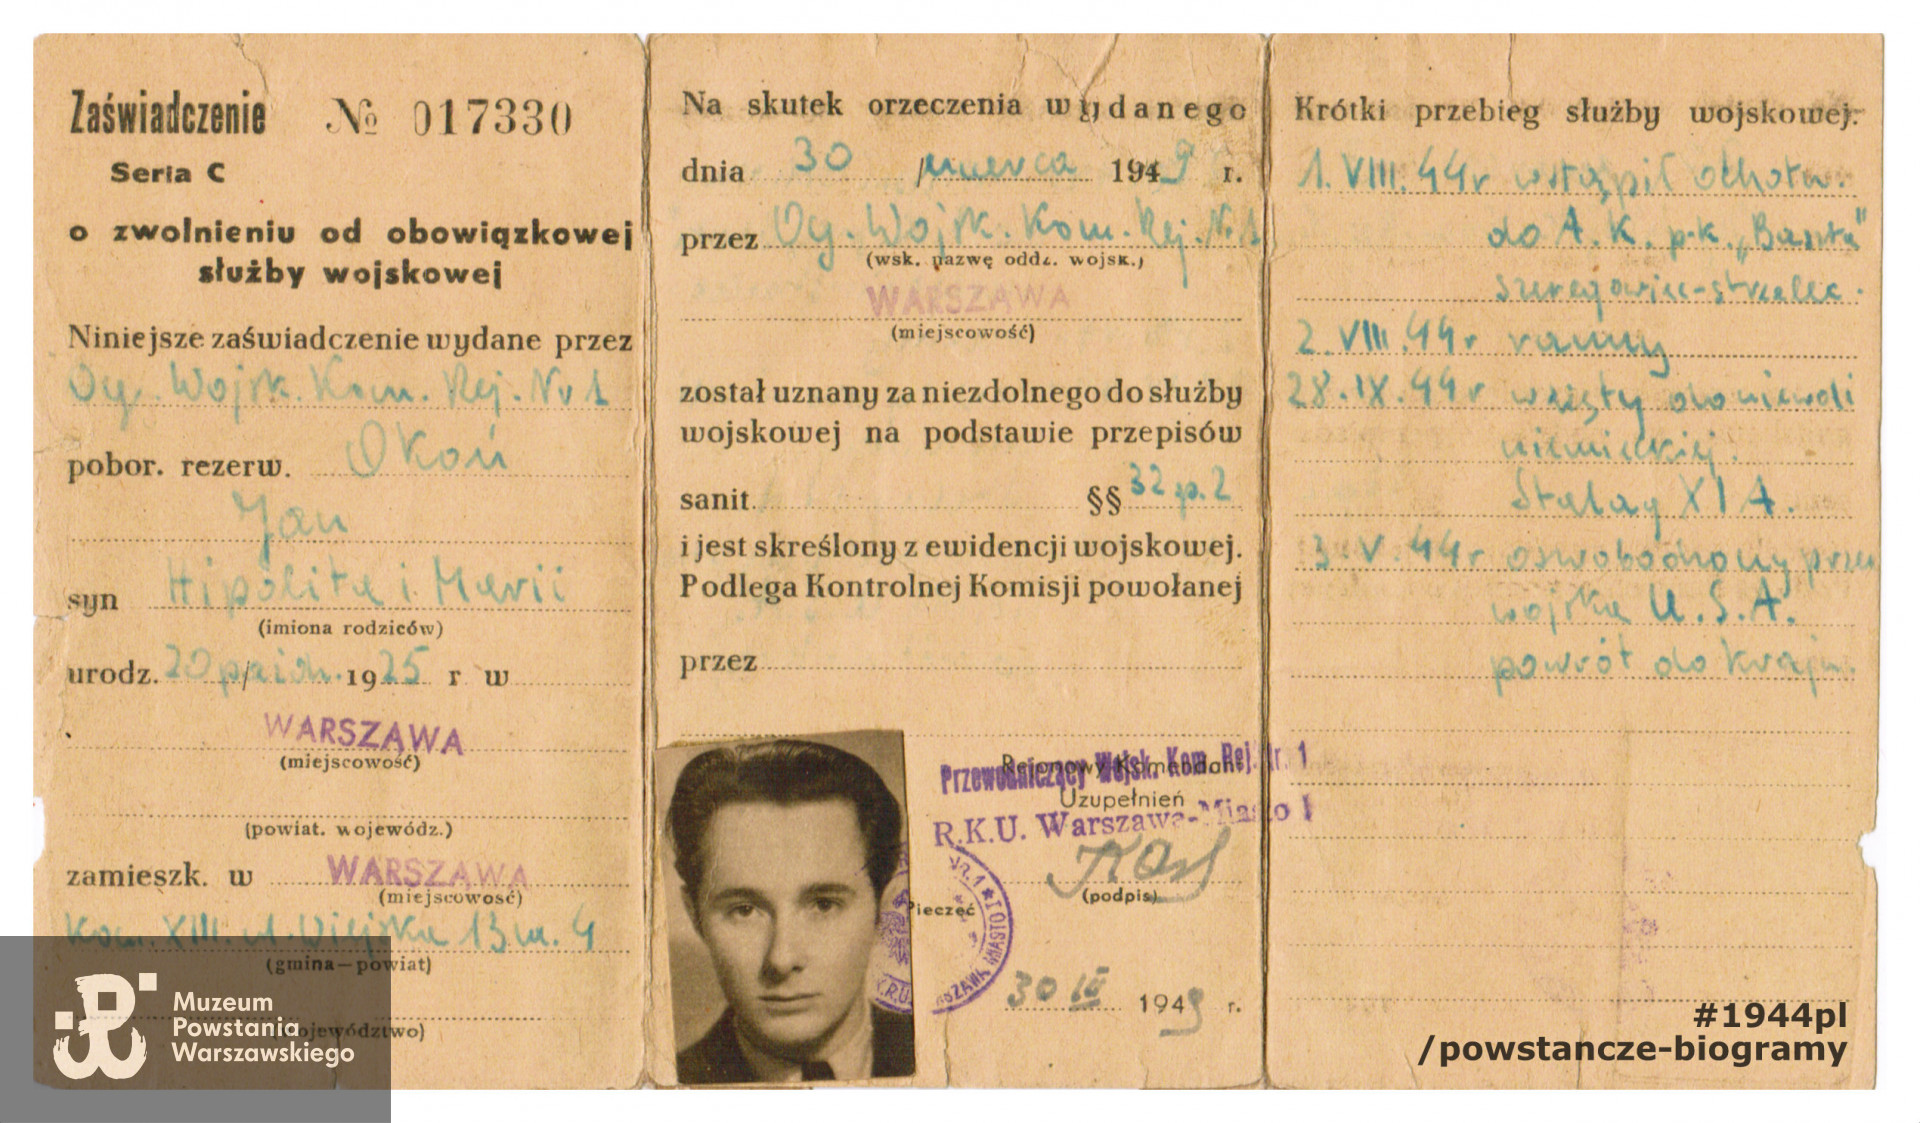 Zaświadczenie № 017330
Seria C
o zwolnieniu od obowiązkowej
służby wojskowej
Niniejsze zaświadczenie wydane przez
Og. Wojsk. Kom. Rej. Nr 1
pobor. rezerw. Okoń
Jan
syn Hipolita i Marii
(imiona rodziców)
urodz. 20 paźdz. 1925 r w
WARSZAWA
(miejscowość)
(powiat. wojewódz.)
zamieszk. w WARSZAWA
(miejscowość)
Kom. XIII. ul. Wiejska 13 m. 4
(gmina—powiat)
(województwo)
Na skutek orzeczenia wydanego
dnia 30 marca 1949 r.
przez Og. Wojsk. Kom. Rej. Nr 1
(wsk. nazwę oddz. wojsk.)
WARSZAWA
(miejscowość)
został uznany za niezdolnego do służby
wojskowej na podstawie przepisów
sanit. §§ 32 p. 2
i jest skreślony z ewidencji wojskowej.
Podlega Kontrolnej Komisji powołanej
przez
Rejonowy Komendant
Przewodniczący Wojsk. Kom. Rej. Nr. 1
Uzupełnień
R.K.U. Warszawa-Miasto I
(podpis)
Pieczęć
30 III 1949 r.
Krótki przebieg służby wojskowej:
1. VIII. 44 r wstąpił ochotn.
do A. K. p-k. „Baszta"
szeregowiec-strzelec.
2. VIII. 44 r ranny
28. IX. 44 r wzięty do niewoli
niemieckiej.
Stalag XI A.
3 V. 44 r oswobodzony przez
wojska U. S. A.
powrót do kraju.
Muzeum
Powstania
Warszawskiego
#1944pl
/powstancze-biogramy